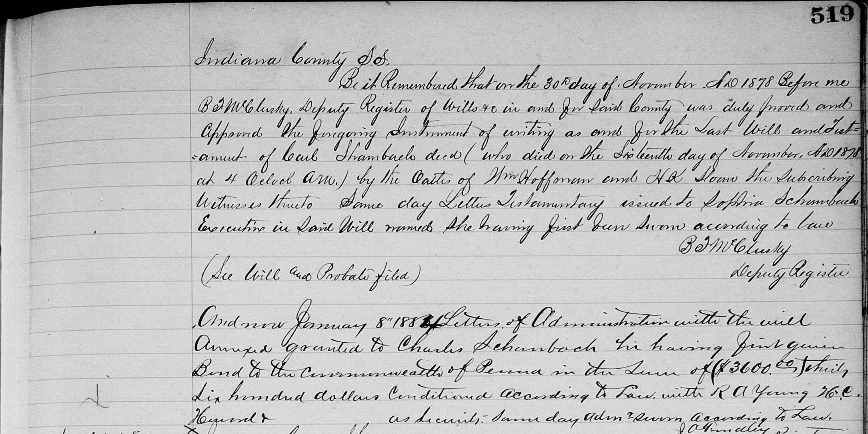 519
Indiana County S.S.
Be it Remembered that on the 30th day of November AD 1878 Before me
B F McClusky. Deputy Register of Wills &c in and for said County was duly proved and
Approved the foregoing Instrument of writing as and for the Last Will and Test-
=ament of Carl Shambach decd (who died on the Sixteenth day of November, AD 1878
at 4 Oclock A.M.) by the Oaths of Wm Hoffman and the subscribing
Witnesses thereto Same day Letters Testamentary issued to Sophia Schambach
Executrix in said Will named she having first been sworn according to law
B F McClusky
(See Will and Probate filed) Deputy Register
And now January 8th Letters of Administration with the will
Annexed granted to Charles Schambach he having first given
Bond to the Commonwealth of Penna in the Sum of ($3600.00) thirty
six hundred dollars Conditioned According to Law. with R A Young H. C.
Howard & as security- Same day Admr sworn According to Law.